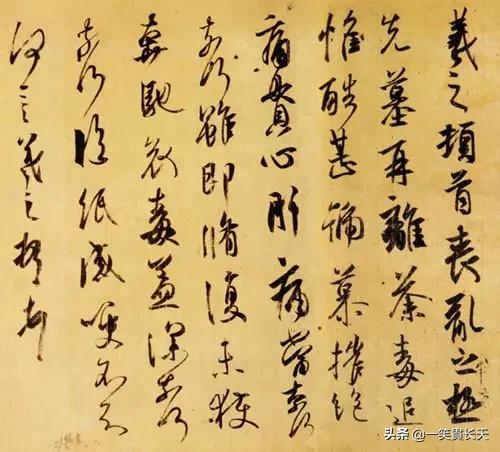 羲之頓首喪亂之極
先墓再離荼毒追
惟酷甚號慕摧絕
痛貫心肝痛當奈何
奈何雖即脩復未獲
奔馳哀毒益深奈何
奈何臨紙感哽不知
何言羲之頓首頓首
头条 @一笑貫长天